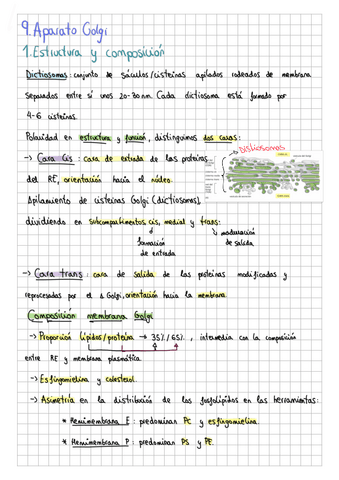 9. Aparato Golgi
1. Estructura y composición
Dictiosomas: conjunto de sáculos/cisternas apilados rodeados de membrana
separados entre sí unos 20-30 nm. Cada dictiosoma está formado por
4-6 cisternas.
Polaridad en estructura y función, distinguimos dos caras:
-> Cara Cis: cara de entrada de las proteínas
DICTIOSOMAS
del RE, orientación hacia el núcleo.
Apilamiento de cisternas Golgi (dictiosomas),
dividiendo en subcompartimentos cis, medial y trans:
formación
de entrada
maduración
de salida
-> Cara trans: cara de salida de las proteínas modificadas y
reprocesadas por el A Golgi, orientación hacia la membrana.
Composición membrana Golgi
-> Proporción lípidos/proteína -> 35%/65%, intermedia con la composición
entre RE y membrana plasmática.
-> Esfingomielina y colesterol.
-> Asimetría en la distribución de los fosfolípidos en las hemimembranas:
* Hemimembrana E: predominan PC y esfingomielina.
* Hemimembrana P: predominan PS y PE.